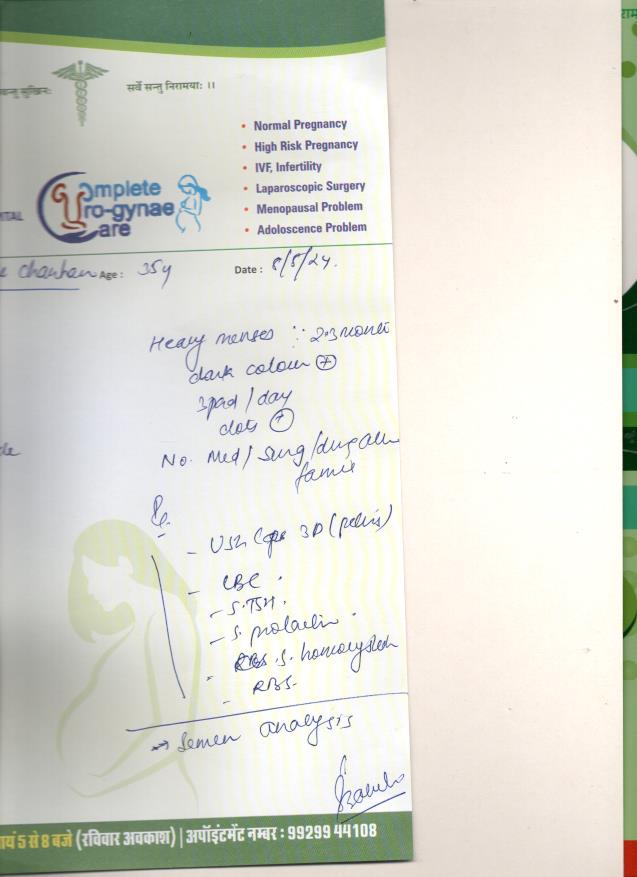 सर्वे सन्तु निरामयाः ।।
• Normal Pregnancy
• High Risk Pregnancy
• IVF, Infertility
• Laparoscopic Surgery
• Menopausal Problem
• Adoloscence Problem
Complete
Uro-gynae
Care
Chauhan Age : 35y Date : 8/5/24.
Heavy menses ∵ 2-3 month
dark colour (+)
3pad/day
clots (+)
No. Med/Surg/drug
- USG 3D (pelvis)
- CBC.
- S.TSH.
- S. prolactin.
S. homocystein
- RBS.
Semen analysis
5 से 8 बजे (रविवार अवकाश) | अपॉइंटमेंट नम्बर : 99299 44108